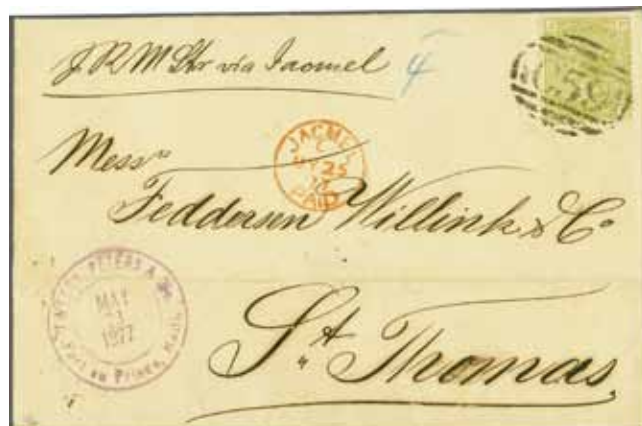 p R M Str via Jacmel 4
C59
JACMEL
C
MY 25
77
PAID
Messrs
Feddersen Willink & Co
PETERS &
MAY
1877
Port au Prince, Haiti.
St Thomas